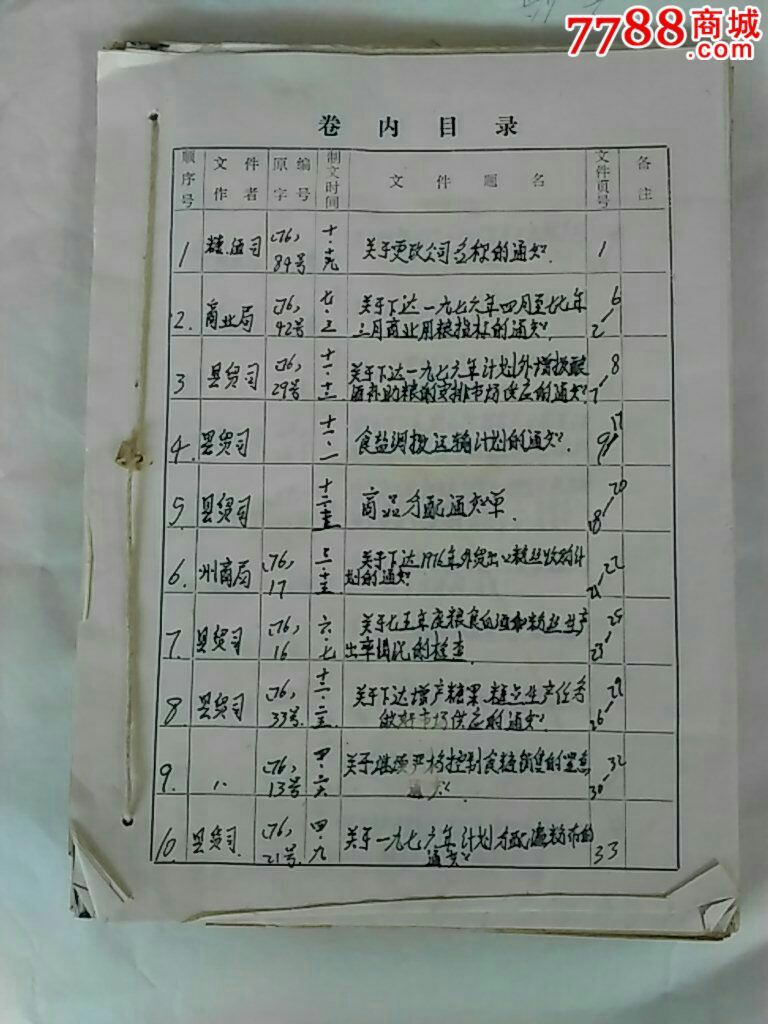 7788商城
.com
卷内目录
顺序号 文件作者 原编字号 制文时间 文件题名 文件页号 备注
1 糖酒司 (76)84号 十·十九 关于更改公司名称的通知 1
2. 商业局 (76)42号 七·三 关于下达一九七六年四月至七七年
三月商业用粮指标的通知 2—6
3 县贸司 (76)29号 十一·十三 关于下达一九七六年计划外增拨酿
酒补助粮的安排市场供应的通知 7—8
4. 县贸司 十一·一 食盐调拨运输计划的通知. 9—17
5 县贸司 商品分配通知单. 18—20
6. 州商局 (76)17 关于下达1976年外贸出口粉丝收购计
划的通知 21—22
7. 县贸司 (76)16 六·七 关于七五年度粮食白酒和粉丝生产
出率情况的检查 23—25
8 县贸司 (76)33号 关于下达增产糖果、糕点生产任务
做好市场供应的通知 26—29
9. 〃 (76)13号 四·二六 关于继续严格控制食糖销售的
通知 30—32
10 县贸司. (76)21号 四·九 关于一九七六年计划分配滤粉布的
通知 33